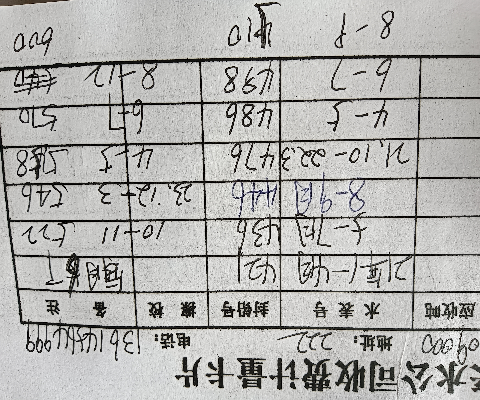 水公司收费计量卡片
地址: 222 电话:
应收吨 水表号 封铅号 振校 备注
21年1-4月 421
5-7月 436 10-11 522
8-9月 446 23,12-3 546
21,10-22.3 476 4-5
4-5 486 6-7 570
6-7 498 8-12
8-9 510 600